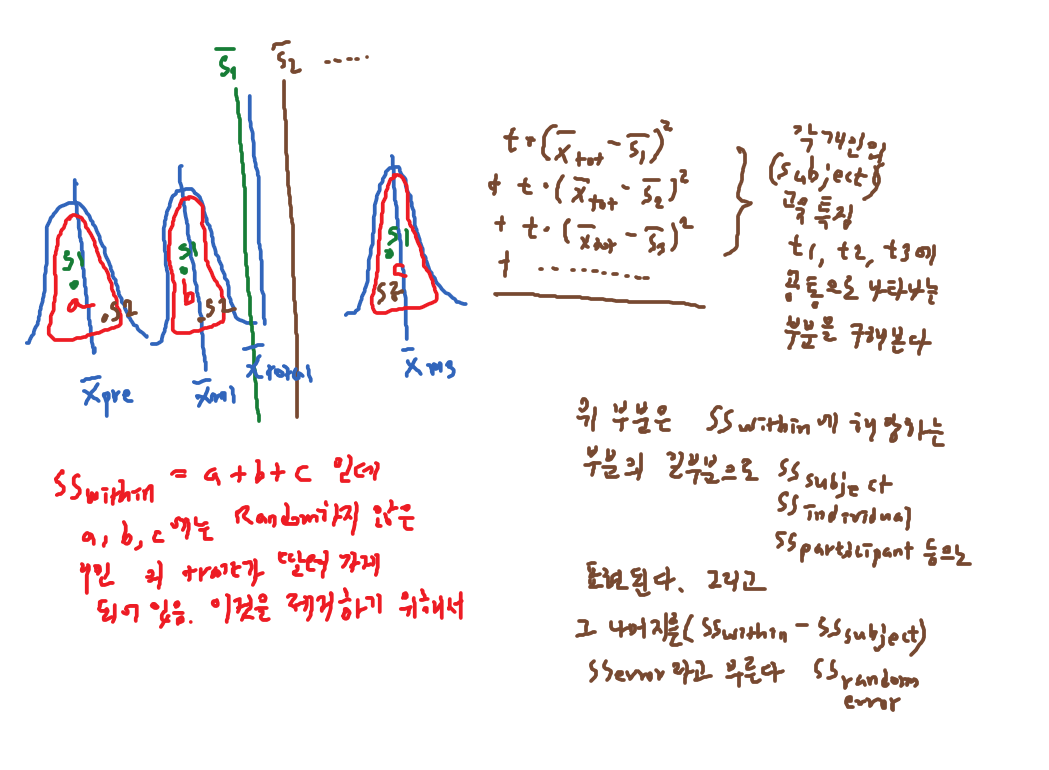 S̅₁ S̅₂ ......
S1
a
.S2
S1
b
.S2
S1
c
S2
X̅pre
X̅m1
X̅total
X̅m3
t·(X̅tot - S̅₁)²
+ t·(X̅tot - S̅₂)²
+ t·(X̅tot - S̅₃)²
+ ..........
각 개인의
(subject)
고유 특징
t1, t2, t3에
공통으로 나타나는
부분을 구해본다
SSwithin = a + b + c 인데
a, b, c 에는 Random하지 않은
개인 의 trait가 딸려 가게
되어 있음. 이것을 제거하기 위해서
위 부분은 SSwithin에 해당하는
부분의 일부분으로 SSsubject
SSindividual
SSparticipant 등으로
표현된다. 그리고
그 나머지를(SSwithin - SSsubject)
SSerror라고 부른다 SSrandom
error